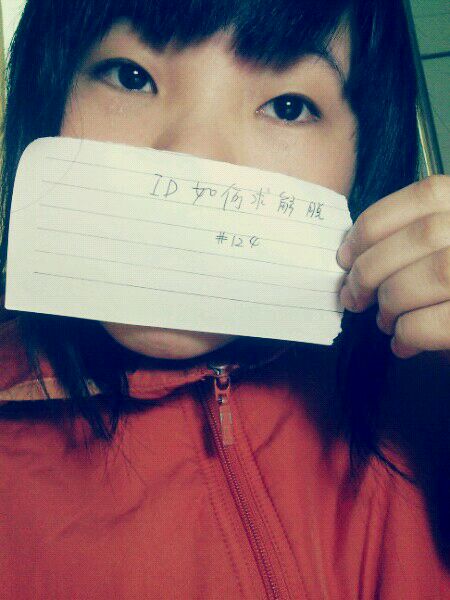 ID 如何求解脱
#124